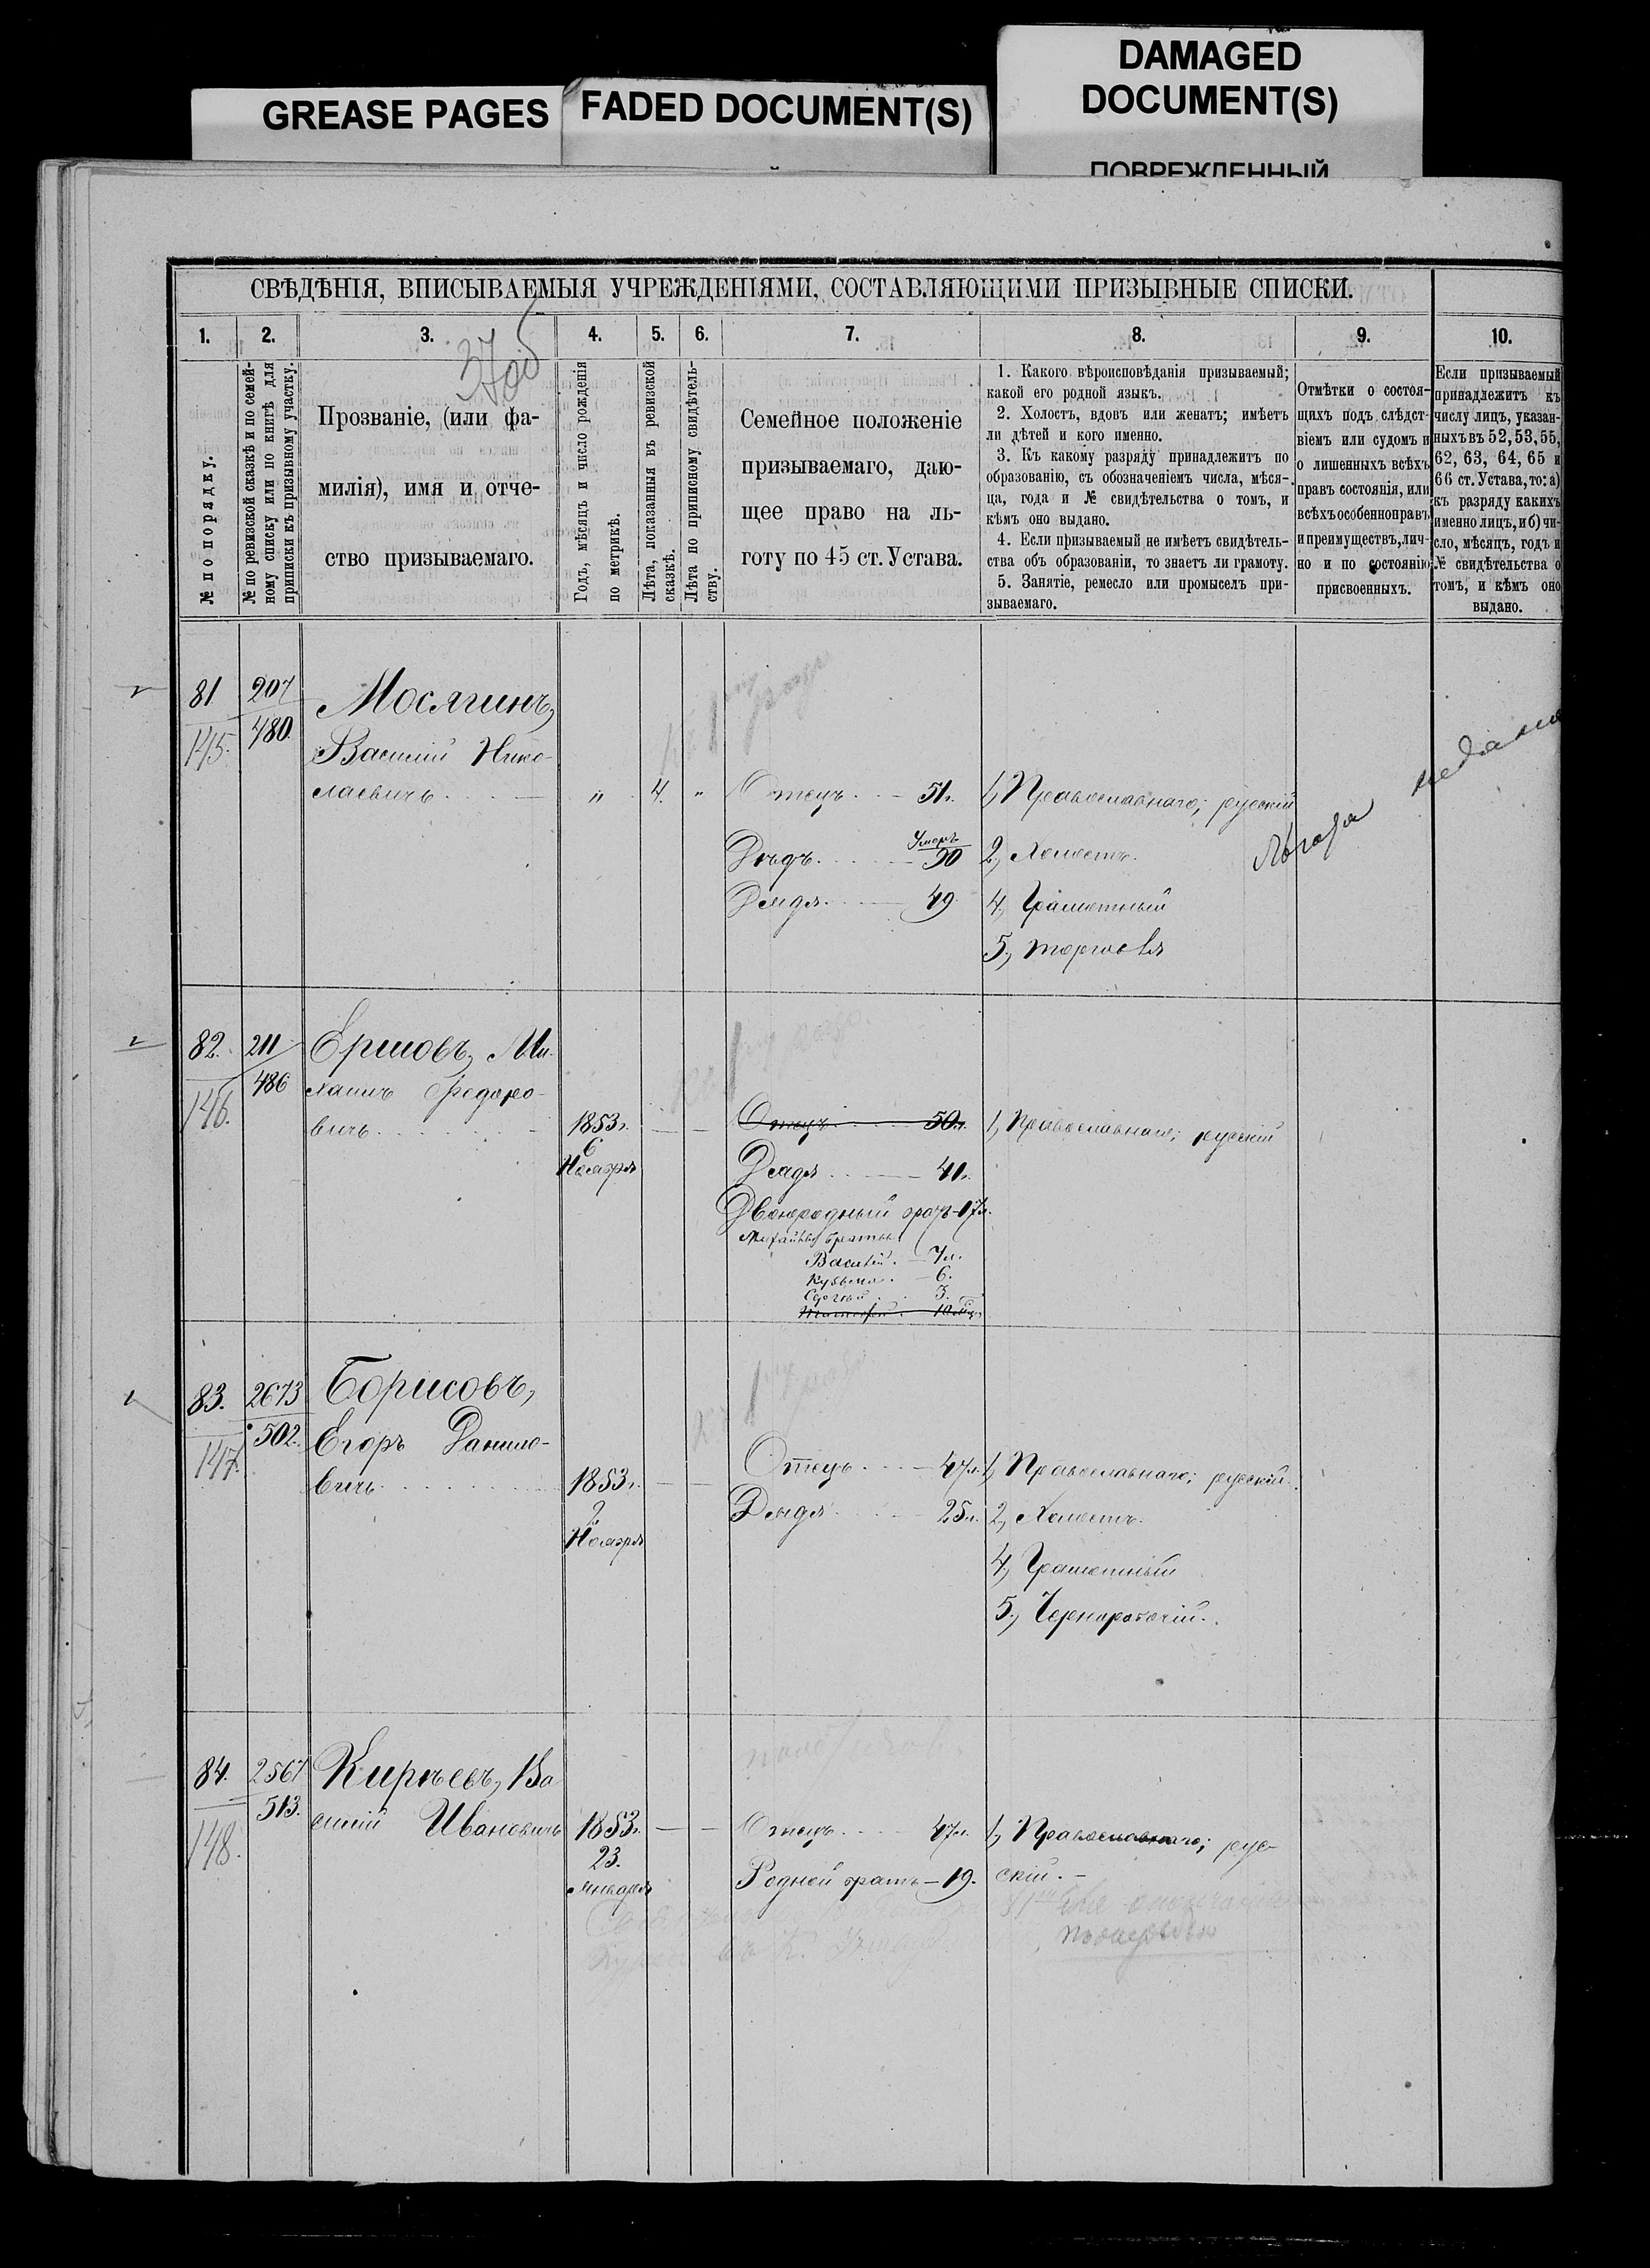 GREASE PAGES
FADED DOCUMENT(S)
DAMAGED
DOCUMENT(S)
ПОВРЕЖДЕННЫЙ
СВѢДѢНІЯ, ВПИСЫВАЕМЫЯ УЧРЕЖДЕНІЯМИ, СОСТАВЛЯЮЩИМИ ПРИЗЫВНЫЕ СПИСКИ.
1. 2. 3. 4. 5. 6. 7. 8. 9. 10.
№ по порядку.
№ по ревизской сказкѣ и по семей-
ному списку или по книгѣ для
приписки къ призывному участку.
Прозваніе, (или фа-
милія), имя и отче-
ство призываемаго.
Годъ, мѣсяцъ и число рожденія
по метрикѣ.
Лѣта, показанныя въ ревизской
сказкѣ.
Лѣта по приписному свидѣтель-
ству.
Семейное положеніе
призываемаго, даю-
щее право на ль-
готу по 45 ст. Устава.
1. Какого вѣроисповѣданія призываемый;
какой его родной языкъ.
2. Холостъ, вдовъ или женатъ; имѣетъ
ли дѣтей и кого именно.
3. Къ какому разряду принадлежитъ по
образованію, съ обозначеніемъ числа, мѣся-
ца, года и № свидѣтельства о томъ, и
кѣмъ оно выдано.
4. Если призываемый не имѣетъ свидѣтель-
ства объ образованіи, то знаетъ ли грамоту.
5. Занятіе, ремесло или промыселъ при-
зываемаго.
Отмѣтки о состоя-
щихъ подъ слѣдст-
віемъ или судомъ и
о лишенныхъ всѣхъ
правъ состоянія, или
всѣхъ особенно правъ
и преимуществъ, лич-
но и по состоянію
присвоенныхъ.
Если призываемый
принадлежитъ къ
числу лицъ, указан-
ныхъ въ 52, 53, 55,
62, 63, 64, 65 и
66 ст. Устава, то: а)
къ разряду какихъ
именно лицъ, и б) чи-
сло, мѣсяцъ, годъ и
№ свидѣтельства о
томъ, и кѣмъ оно
выдано.
81 207 Мосягинъ,
145. 480. Василій Нико-
лаевичъ " 4. " Отецъ 51л. 1, Православнаго; русскій
Умеръ
Дѣдъ 90 2, Холостъ.
Дядя 49 4, Грамотный
5, торговля
Льгота
82. 211 Ершовъ, Ми-
146. 486 хаилъ Федоро-
вичъ 1853г. Отецъ 50л. 1, Православнаго; русскій
6
Ноября Дядя 41л.
Двоюродный братъ 17л.
братья
Василій. 7л.
Кузьма. 6.
Сергѣй 3.
83. 2673 Борисовъ,
147. 502. Егоръ Данило-
вичъ 1853г. Отецъ 47л. 1, Православнаго; русскій.
2
Ноября Дядя 25л. 2, Холостъ.
4, Грамотный
5, Чернорабочій.
84. 2567 Кирѣевъ, Ва
148. 513. силій Ивановичъ 1853г. Отецъ 47л. 1, Православнаго; рус-
23.
Января Родной братъ 19. скій.